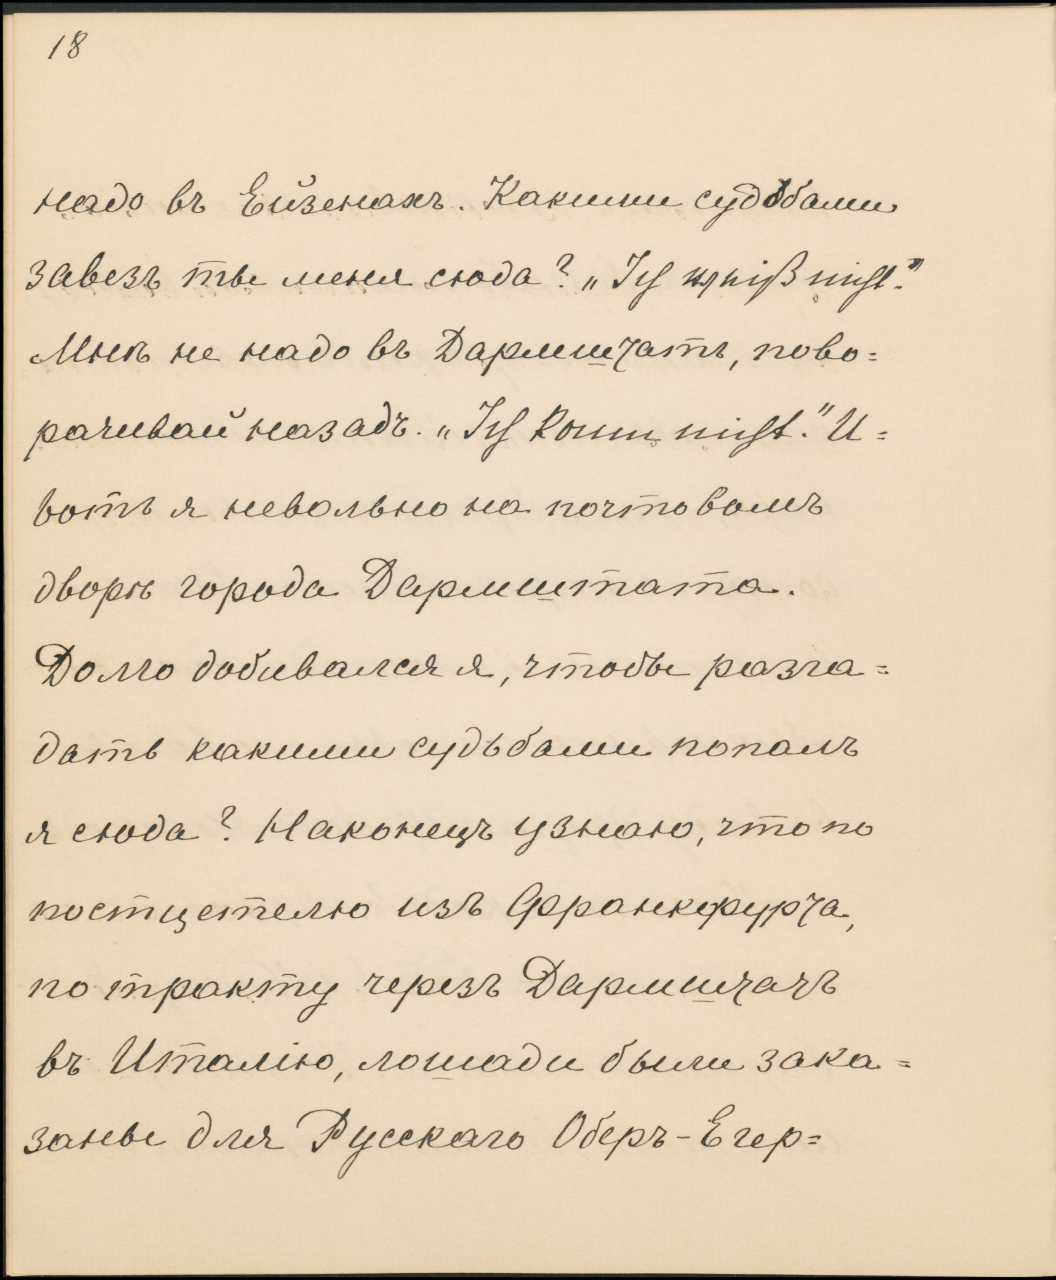 18
надо въ Ейзенахъ. Какими судьбами
завезъ ты меня сюда? „Ich weiß nicht.“
Мнѣ не надо въ Дармштатъ, пово=
рачивай назадъ. „Ich kann nicht.“ И=
вотъ я невольно на почтовомъ
дворѣ города Дармштата.
Долго добивался я, чтобы разга=
дать какими судьбами попалъ
я сюда? Наконецъ узнаю, что по
по тракту черезъ Дармштатъ
въ Италію, лошади были зака=
заны для Русскаго Оберъ-Егер=